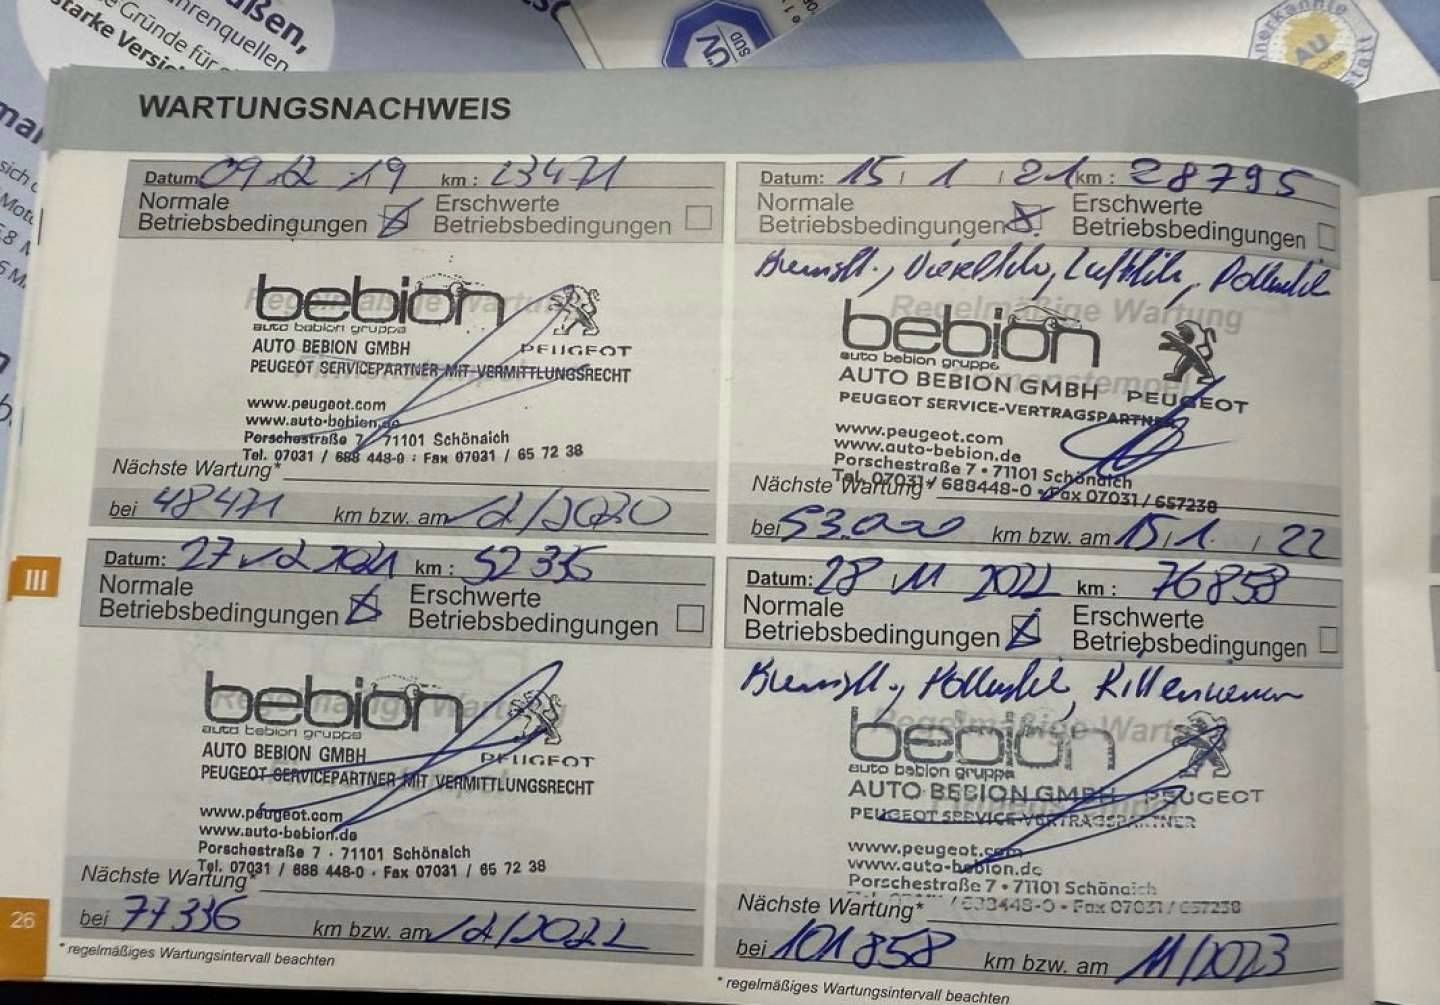 außen,
starke Versich
TÜV
SÜD
AU
WARTUNGSNACHWEIS
Datum: 09.12.19 km: 23471
Normale Erschwerte
Betriebsbedingungen Betriebsbedingungen
Regelmäßige Wartung
bebion
auto bebion gruppe
AUTO BEBION GMBH PEUGEOT
PEUGEOT SERVICEPARTNER MIT VERMITTLUNGSRECHT
www.peugeot.com
www.auto-bebion.de
Porschestraße 7 · 71101 Schönaich
Tel. 07031 / 688 448-0 · Fax 07031 / 65 72 38
Nächste Wartung*
bei 48471 km bzw. am 12/2020
Datum: 15 / 1 / 21 km: 28795
Normale Erschwerte
Betriebsbedingungen Betriebsbedingungen
Bremsfl., Luftfilter, Pollenfilter
Regelmäßige Wartung
bebion
auto bebion gruppe
Firmenstempel
AUTO BEBION GMBH PEUGEOT
PEUGEOT SERVICE-VERTRAGSPARTNER
www.peugeot.com
www.auto-bebion.de
Porschestraße 7 • 71101 Schönaich
Tel. 07031 / 688448-0 • Fax 07031 / 657238
Nächste Wartung*
bei 53.000 km bzw. am 15/1. / 22
III
Datum: 27 12 2021 km: 52336
Normale Erschwerte
Betriebsbedingungen Betriebsbedingungen
Regelmäßige Wartung
bebion
auto bebion gruppe
AUTO BEBION GMBH PEUGEOT
PEUGEOT SERVICEPARTNER MIT VERMITTLUNGSRECHT
www.peugeot.com
www.auto-bebion.de
Porschestraße 7 · 71101 Schönaich
Tel. 07031 / 688 448-0 · Fax 07031 / 65 72 38
Nächste Wartung*
bei 77336 km bzw. am 12/2022
* regelmäßiges Wartungsintervall beachten
Datum: 28 / 11 2022 km: 76858
Normale Erschwerte
Betriebsbedingungen Betriebsbedingungen
Bremsfl., Pollenfilter, Rillenriemen
Regelmäßige Wartung
bebion
auto bebion gruppe
AUTO BEBION GMBH PEUGEOT
PEUGEOT SERVICE-VERTRAGSPARTNER
www.peugeot.com
www.auto-bebion.de
Porschestraße 7 • 71101 Schönaich
/ 688448-0 • Fax 07031 / 657238
Nächste Wartung*
bei 101858 km bzw. am 11/2023
* regelmäßiges Wartungsintervall beachten
26